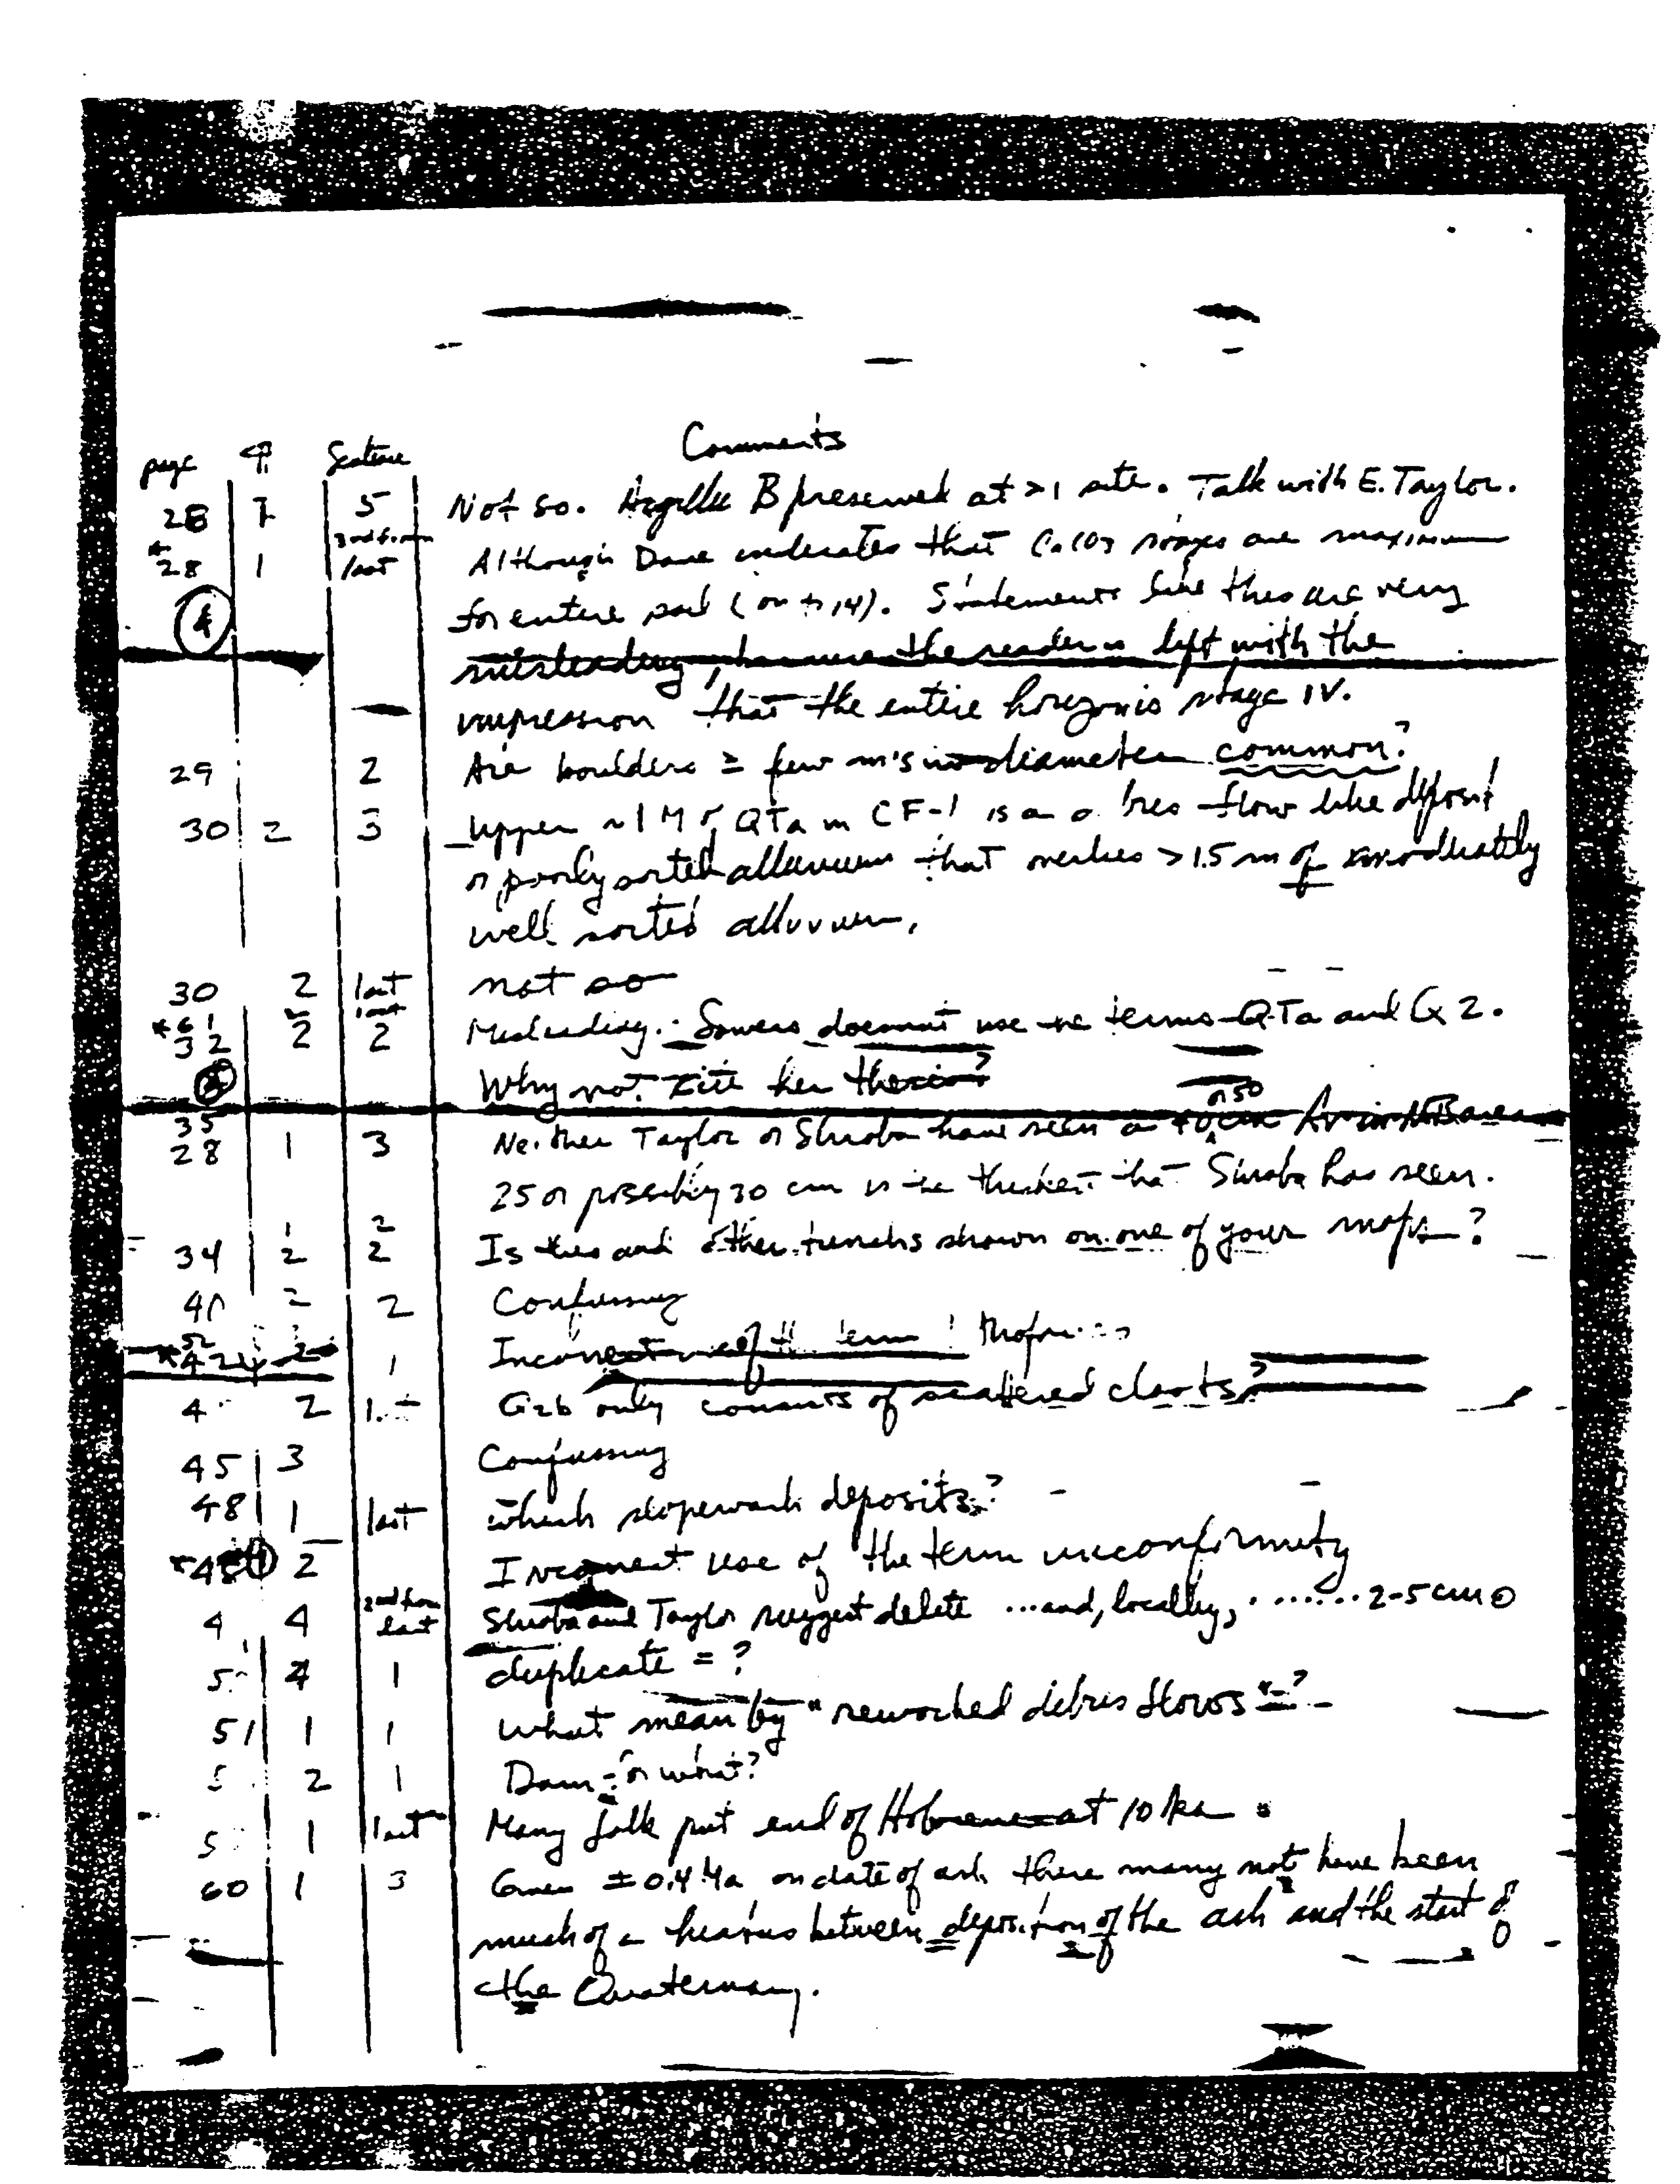 Comments
page ¶ Sentence
28 5 Not so. Argillic B preserved at >1 site. Talk with E. Taylor.
2nd from
*28 1 last Although Dave indicates that CaCO3 stages are maximum
for entire soil (on p 14). Statements like this are very
misleading, because the reader is left with the
impression that the entire horizon is stage IV.
29 2 Are boulders ≥ few m's in diameter common?
30 2 3 Upper ~1 M of QTa in CF-1 is a flow like deposit
or poorly sorted alluvium that overlies >1.5 m of moderately
well sorted alluvium.
30 2 last not so
*61 2 last
32 2 2 Misleading. Sowers does not use the terms QTa and Q2.
Why not cite her thesis?
or 50
35
28 1 3 Neither Taylor or Shroba have seen a 40 cm Av in
25 or possibly 30 cm is the thickest that Shroba has seen.
1 2
34 2 2 Is this and other trenches shown on one of your maps?
2 2 Confusing
1 Incorrect use of the term
2 Q2b only consists of scattered clasts?
45 3 Confussing
48 1 last which slopewash deposits?
*48 2 Incorrect use of the term unconformity
2nd from
4 last Shroba and Taylor suggest delete ...and, locally, ...... 2-5 cm
4 1 duplicate = ?
51 1 1 What mean by "reworked debris flows" = ?
2 1 Dam for what?
1 last Many folk put end of Holocene at 10 ka.
60 1 3 Given ± 0.4 Ma on date of ash there many not have been
much of a hiatus between deposition of the ash and the start of
the Quaternary.